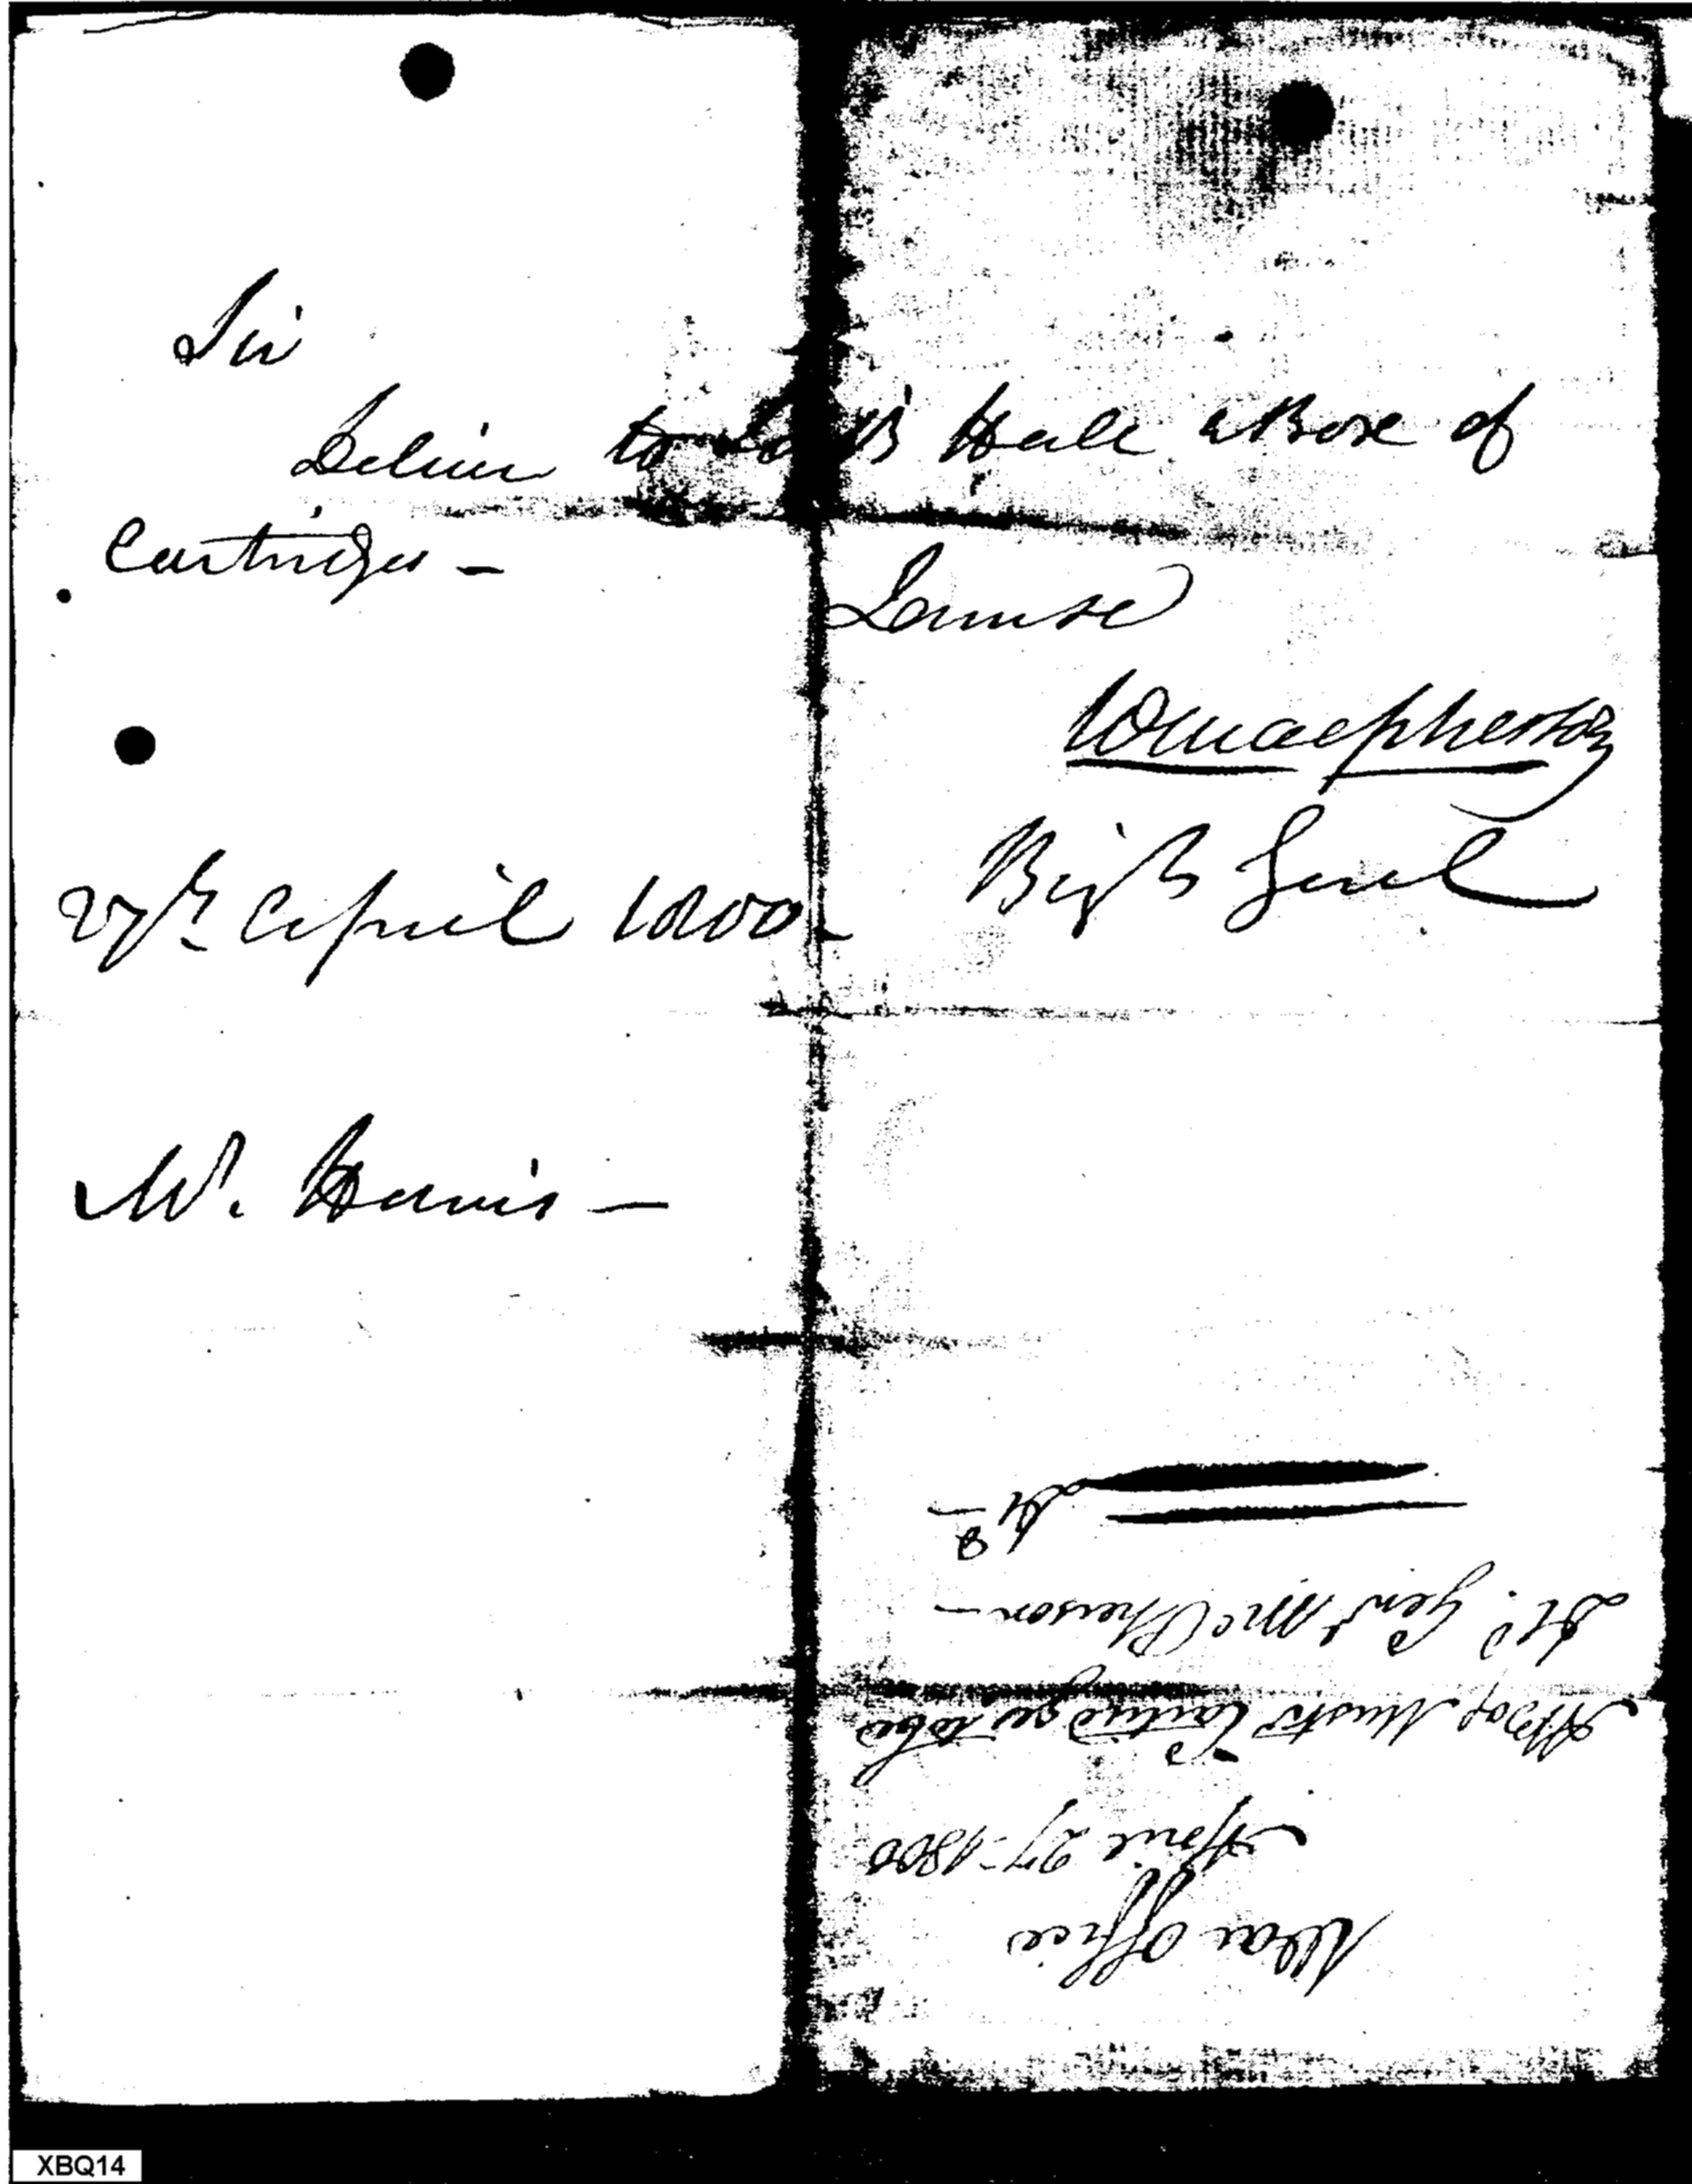 Sir
Deliver to Hall a Box of
Cartridges –
I am Sir
W Macpherson
Brig Genl
27th April 1800
Mr. Harris –
War Office
April 27 – 1800
of Muskt Cartridges to be
Genl McPherson –
XBQ14